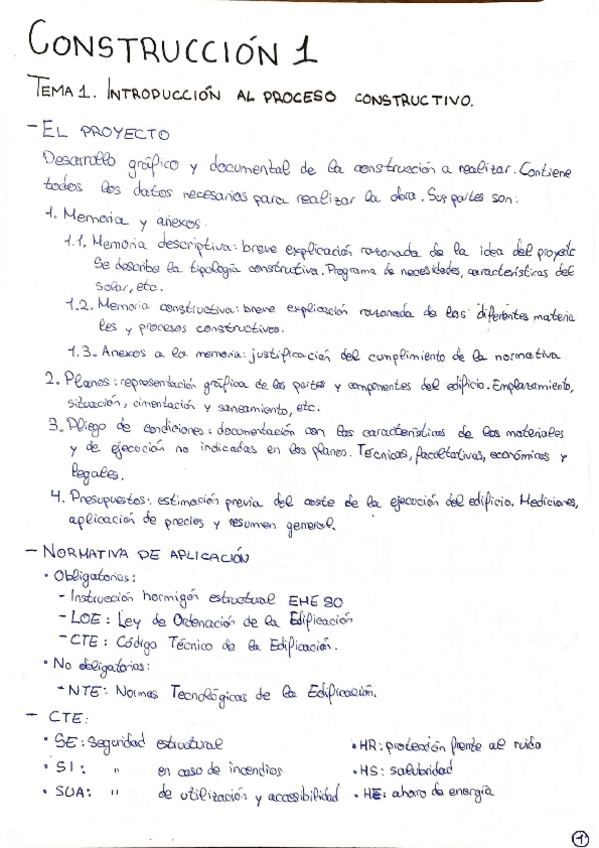 CONSTRUCCIÓN 1
TEMA 1. INTRODUCCIÓN AL PROCESO CONSTRUCTIVO.
- EL PROYECTO
Desarrollo gráfico y documental de la construcción a realizar. Contiene
todos los datos necesarios para realizar la obra. Sus partes son:
1. Memoria y anexos.
1.1. Memoria descriptiva: breve explicación razonada de la idea del proyecto
Se describe la tipología constructiva. Programa de necesidades, características del
solar, etc.
1.2. Memoria constructiva: breve explicación razonada de los diferentes materia
les y procesos constructivos.
1.3. Anexos a la memoria: justificación del cumplimiento de la normativa.
2. Planos: representación gráfica de las partes y componentes del edificio. Emplazamiento,
situación, cimentación y saneamiento, etc.
3. Pliego de condiciones: documentación con las características de los materiales
y de ejecución no indicadas en los planos. Técnicas, facultativas, económicas y
legales.
4. Presupuestos: estimación previa del coste de la ejecución del edificio. Mediciones,
aplicación de precios y resumen general.
- NORMATIVA DE APLICACIÓN
• Obligatorias:
- Instrucción hormigón estructural EHE 80
- LOE: Ley de Ordenación de la Edificación
- CTE: Código Técnico de la Edificación.
• No obligatorias:
- NTE: Normas Tecnológicas de la Edificación.
- CTE:
• SE: Seguridad estructural • HR: protección frente al ruido
• SI: " en caso de incendios • HS: salubridad
• SUA: " de utilización y accesibilidad • HE: ahorro de energía
1